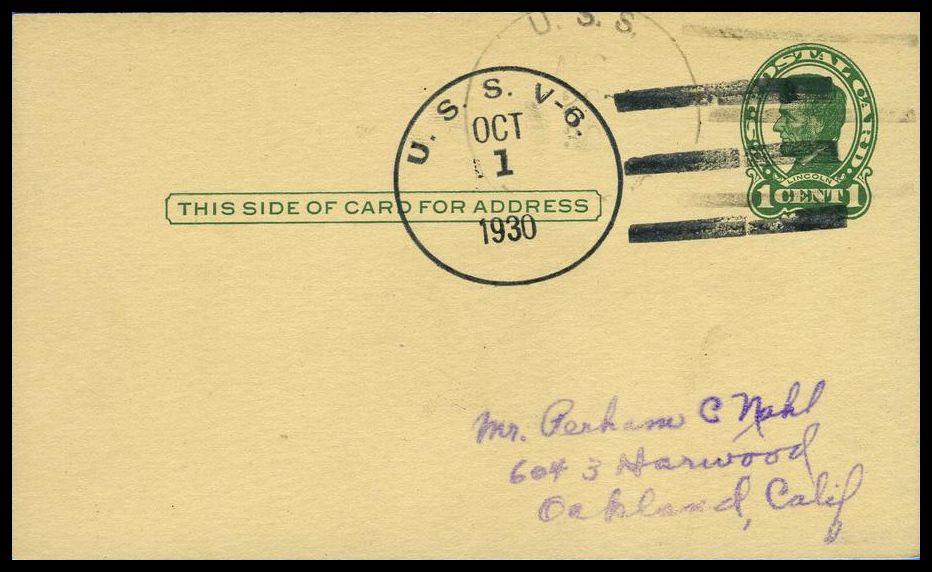 U. S. S.
U. S. S. V-6.
OCT
1
1930
U.S. POSTAL CARD
LINCOLN
1 CENT 1
THIS SIDE OF CARD FOR ADDRESS
Mr. Perham C Nahl
6043 Harwood
Oakland, Calif